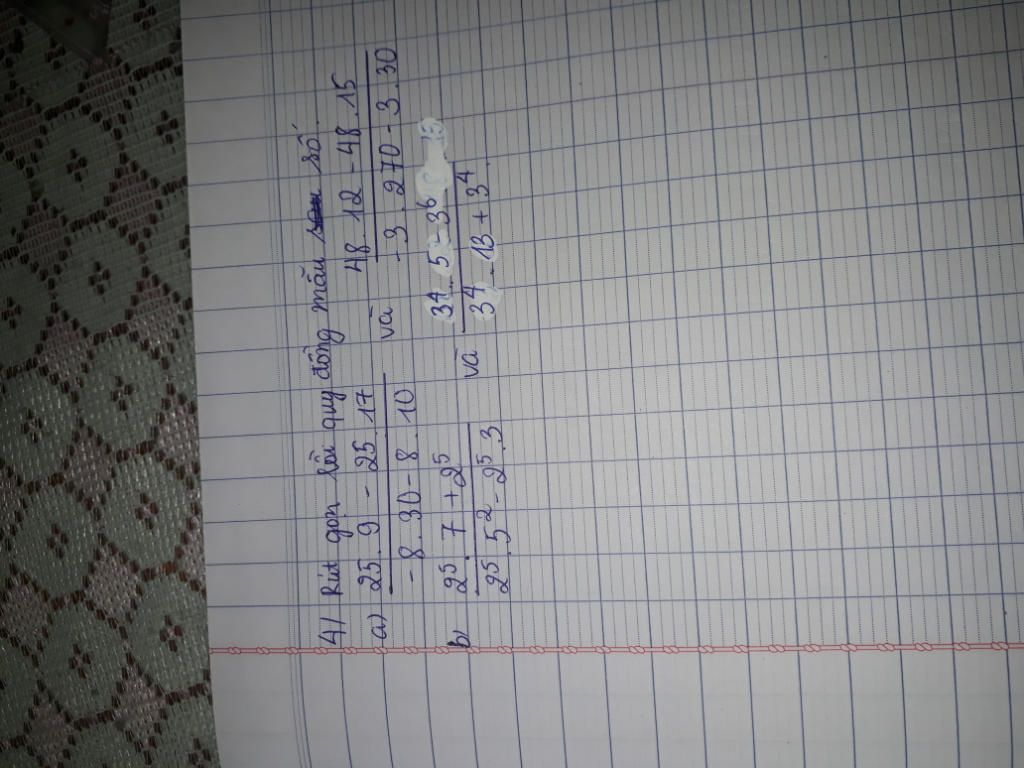 4) Rút gọn rồi quy đồng mẫu số.
a) 25.9 - 25.17 / -8.30 - 8.10 và 48.12 - 48.15 / -3.270 - 3.30
b) 2⁵.7 + 2⁵ / 2⁵.5² - 2⁵.3 và 3⁴.5 - 3⁶ / 3⁴.13 + 3⁴